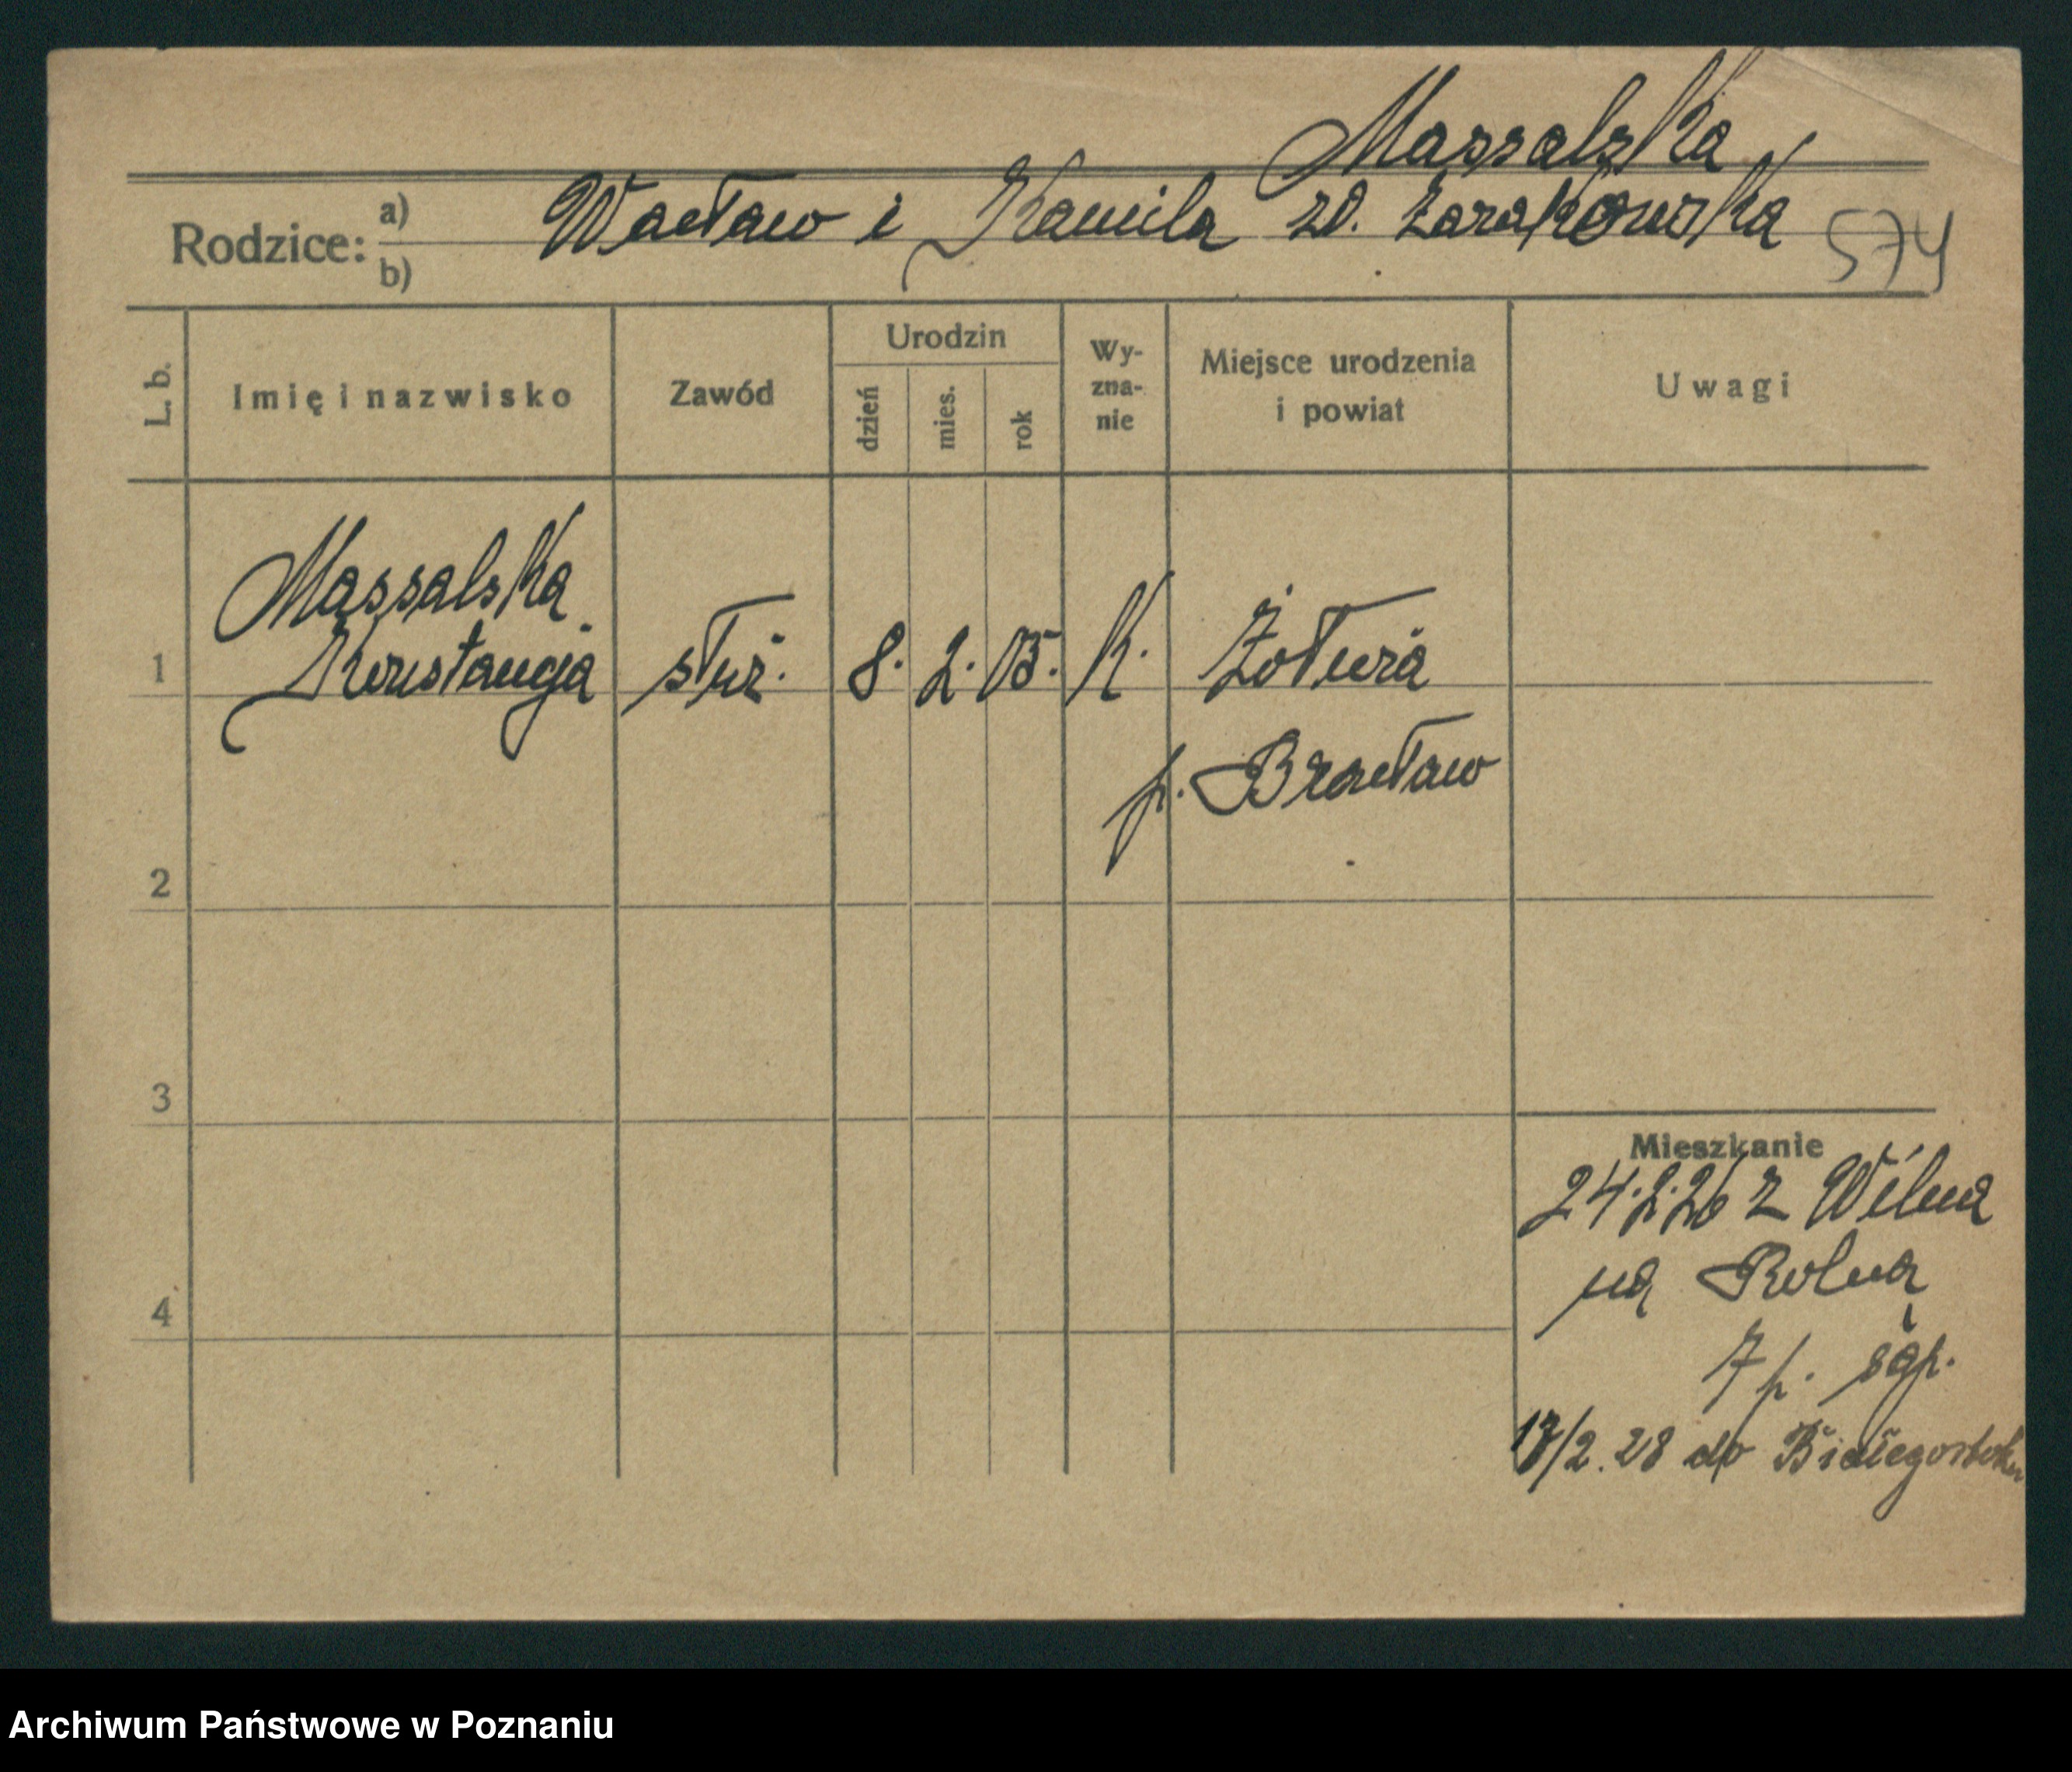 Massalska
Rodzice: a) Wacław i Kamila zd. Żarakowska
b)
574
L. b.
Imię i nazwisko
Zawód
Urodzin
dzień
mies.
rok
Wy-
zna-
nie
Miejsce urodzenia
i powiat
Uwagi
Massalska
1 Konstancja służ. 8. 2. 05. K. Żołwia
p. Bracław
2
3
4
Mieszkanie
24.2.26 z Wilna
na Rolną
7 p.
17/2.28 do Białegostoku
Archiwum Państwowe w Poznaniu